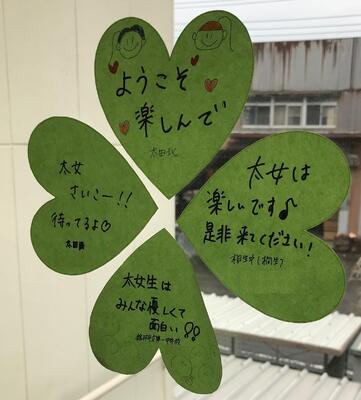 ようこそ
楽しんで
太女
さいこー!!
待ってるよ♡
太女は
楽しいです♪
是非来てください!
太女生は
みんな優しくて
面白い!!